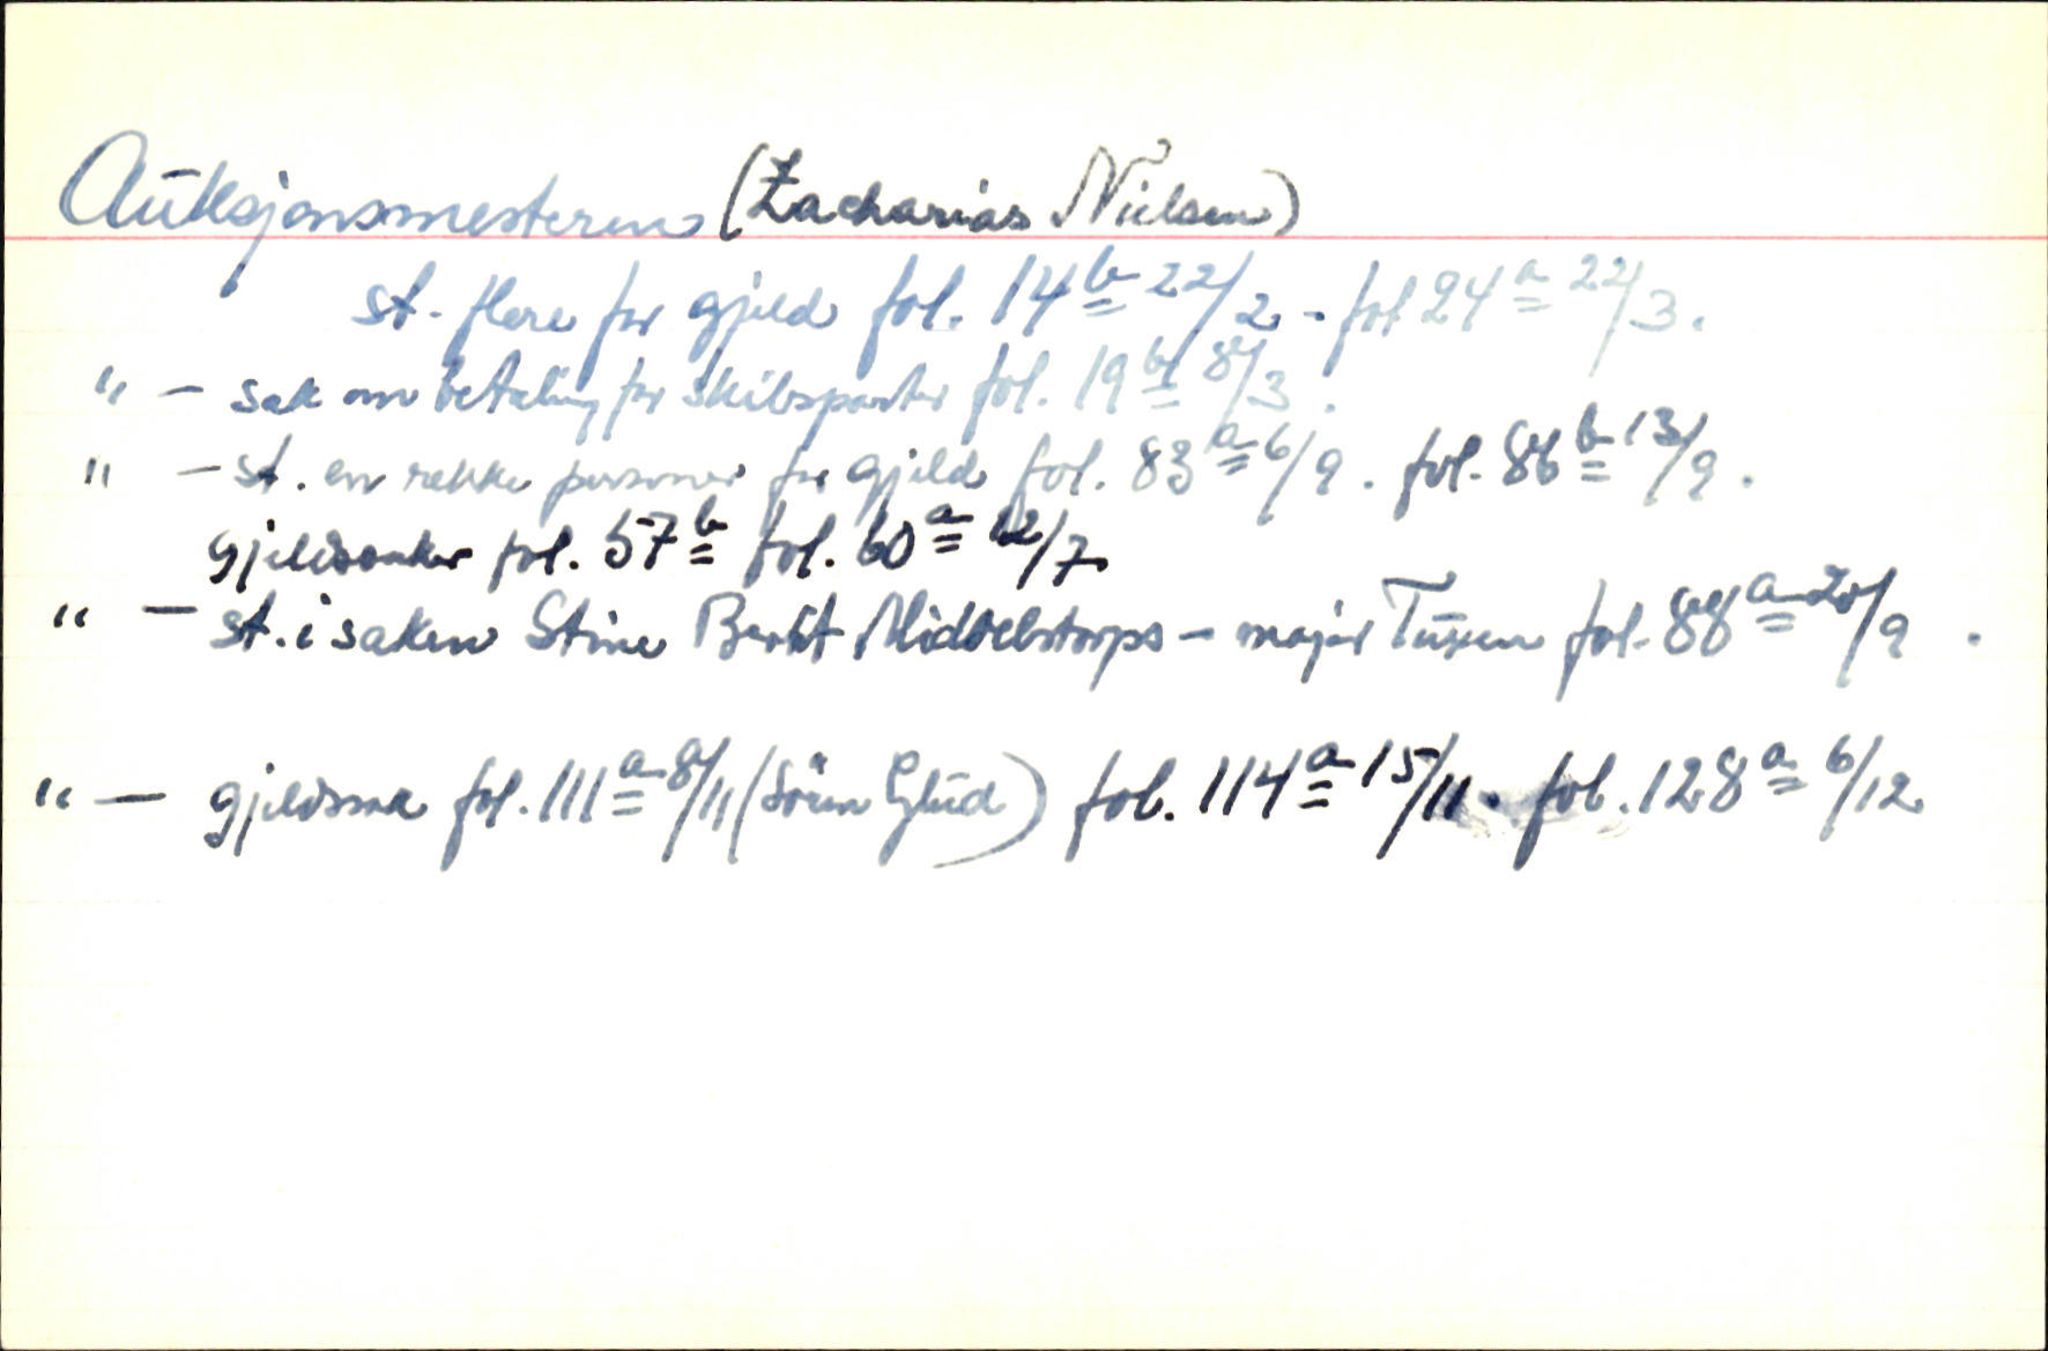 Auksjonsmesteren (Zacharias Nielsen)
st. flere for gjeld fol. 14b 22/2 - fol 24a 22/3.
" - sak om betaling for skibsparter fol. 19b 8/3.
" - st. en rekke personer for gjeld fol. 83a 6/9. fol. 86b 13/9.
gjeldsaker fol. 57b fol. 60a 12/7
" - st. i saken Stine Berlit Middelstorps - major Tuxen fol. 88a 20/9.
" - gjeldssak fol. 111a 8/11 (Sören Glud) fol. 114a 15/11. fol. 128a 6/12